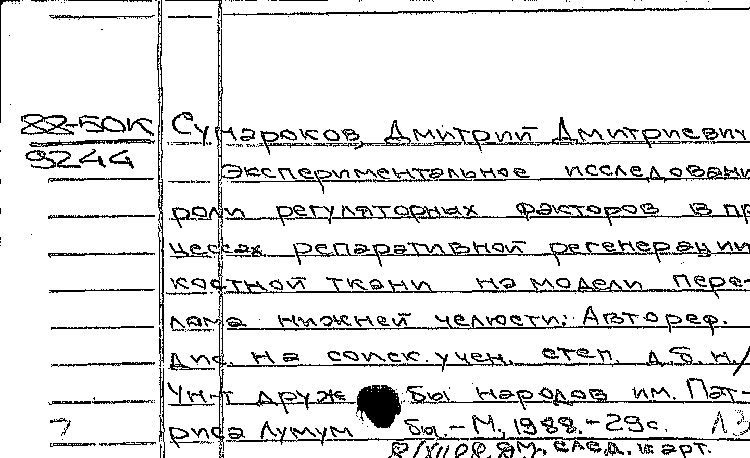 88-50К Сумароков, Дмитрий Дмитриевич
9244
Экспериментальное исследовани
роли регуляторных факторов в пр
цессах репаративной регенерации
костной ткани на модели пере-
лома нижней челюсти: Автореф.
дис. на соиск. учен. степ. д.б.н./
Ун-т друж бы народов им. Пат-
риса Лумум бы.-М., 1988.-29с. 13
след. карт.